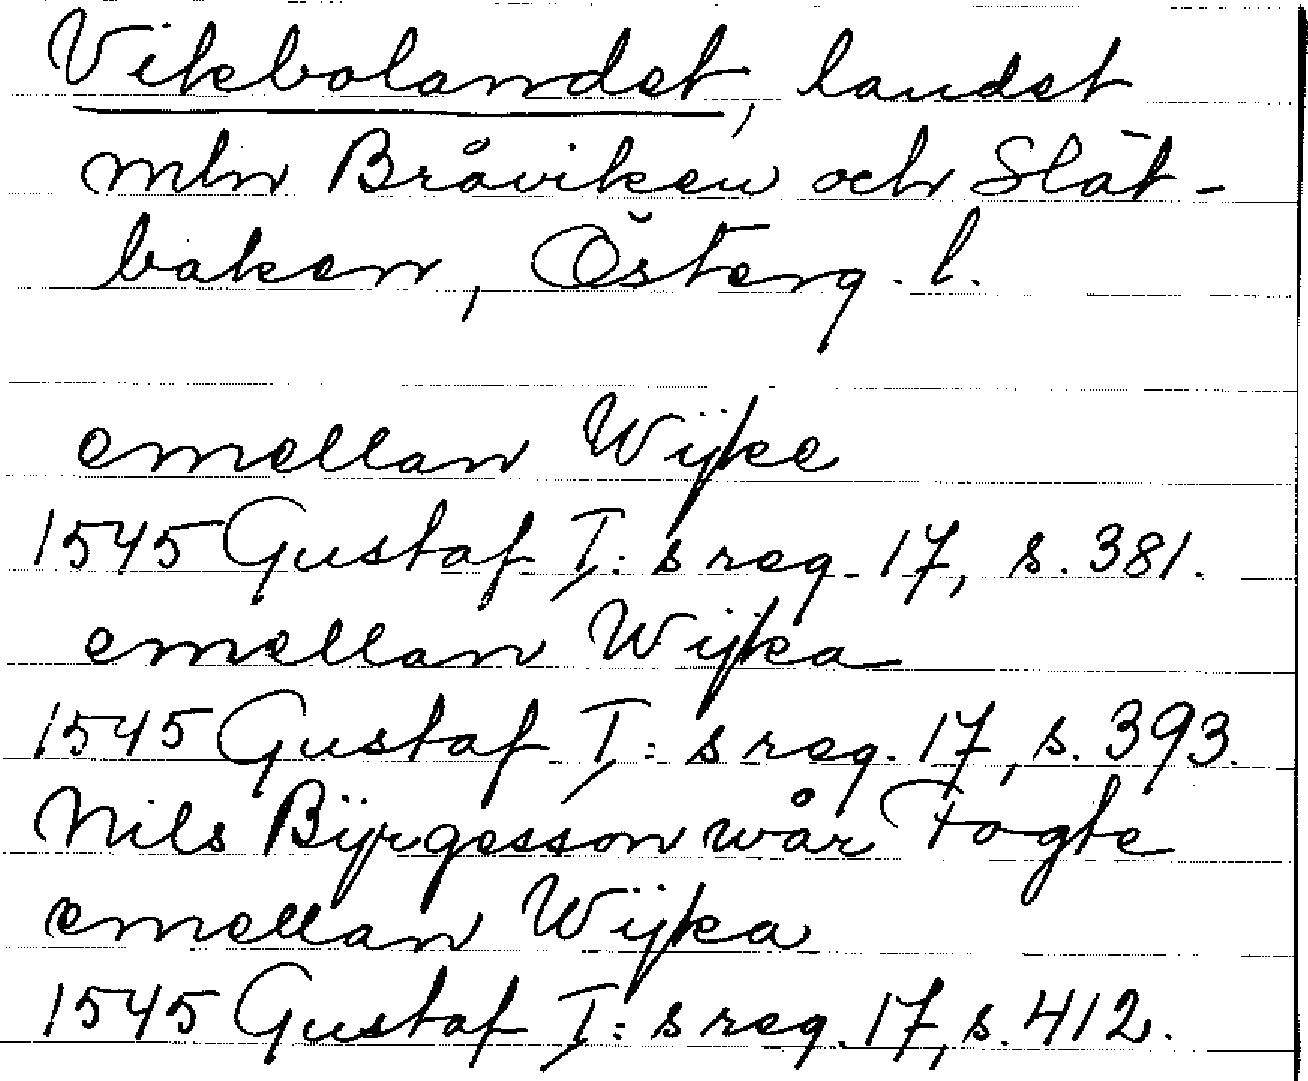 Vikbolandet, landet
mln Bråviken och Slät-
baken, Österg. l.
emellan Wijke
1545 Gustaf I:s reg. 17, s. 381.
emellan Wijka
1545 Gustaf I:s reg. 17, s. 393.
Nils Bÿrgesson wår Fogte
emellan Wijka
1545 Gustaf I:s reg. 17, s. 412.